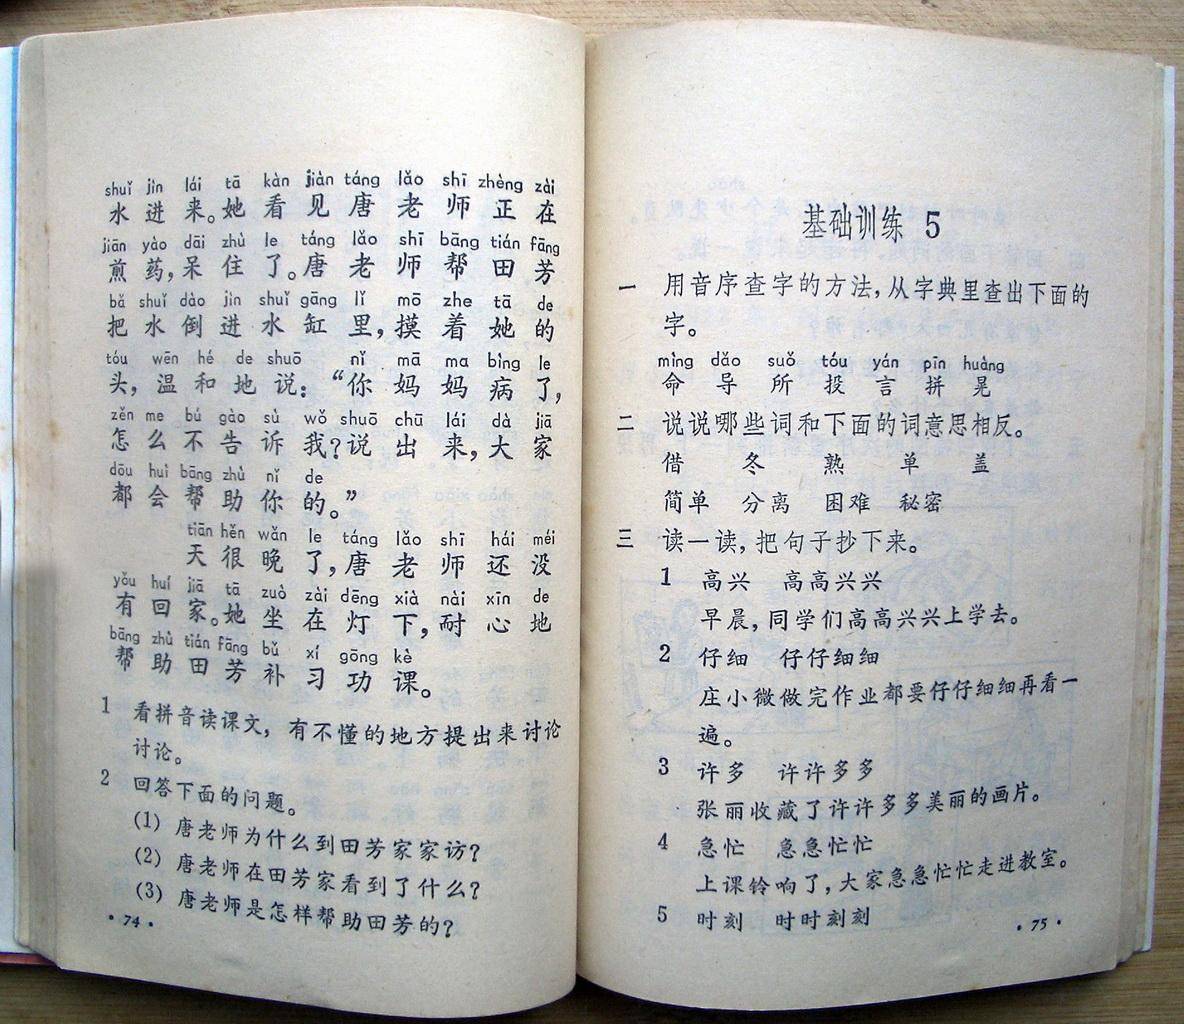 shuǐ jìn lái tā kàn jiàn táng lǎo shī zhèng zài
水进来。她看见唐老师正在
jiān yào dāi zhù le táng lǎo shī bāng tián fāng
煎药，呆住了。唐老师帮田芳
bǎ shuǐ dào jìn shuǐ gāng lǐ mō zhe tā de
把水倒进水缸里，摸着她的
tóu wēn hé de shuō nǐ mā ma bìng le
头，温和地说：“你妈妈病了，
zěn me bú gào sù wǒ shuō chū lái dà jiā
怎么不告诉我？说出来，大家
dōu huì bāng zhù nǐ de
都会帮助你的。”
tiān hěn wǎn le táng lǎo shī hái méi
天很晚了，唐老师还没
yǒu huí jiā tā zuò zài dēng xià nài xīn de
有回家。她坐在灯下，耐心地
bāng zhù tián fāng bǔ xí gōng kè
帮助田芳补习功课。
1 看拼音读课文，有不懂的地方提出来讨论
讨论。
2 回答下面的问题。
(1) 唐老师为什么到田芳家家访？
(2) 唐老师在田芳家看到了什么？
(3) 唐老师是怎样帮助田芳的？
·74·
基础训练 5
一 用音序查字的方法，从字典里查出下面的
字。
mìng dǎo suǒ tóu yán pīn huàng
命 导 所 投 言 拼 晃
二 说说哪些词和下面的词意思相反。
借 冬 熟 单 盖
简单 分离 困难 秘密
三 读一读，把句子抄下来。
1 高兴 高高兴兴
早晨，同学们高高兴兴上学去。
2 仔细 仔仔细细
庄小微做完作业都要仔仔细细再看一
遍。
3 许多 许许多多
张丽收藏了许许多多美丽的画片。
4 急忙 急急忙忙
上课铃响了，大家急急忙忙走进教室。
5 时刻 时时刻刻
·75·